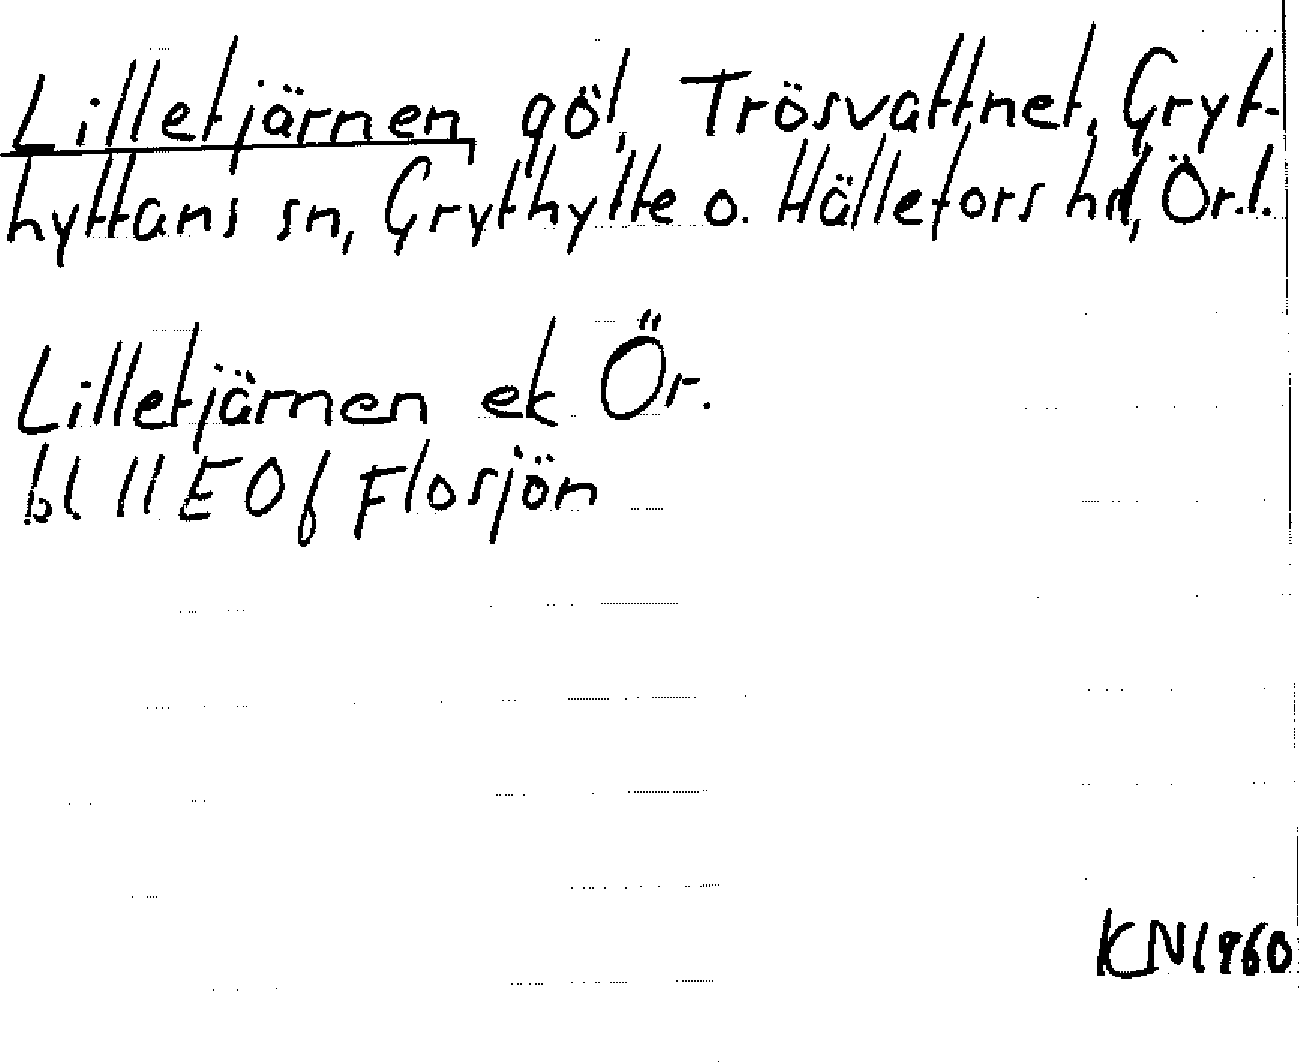 Lilletjärnen, göl, Trösvattnet, Gryt-
hyttans sn, Grythytte o. Hällefors hd, Ör.l.
Lilletjärnen ek Ör.
bl 11E 0f Flosjön
KN 1960